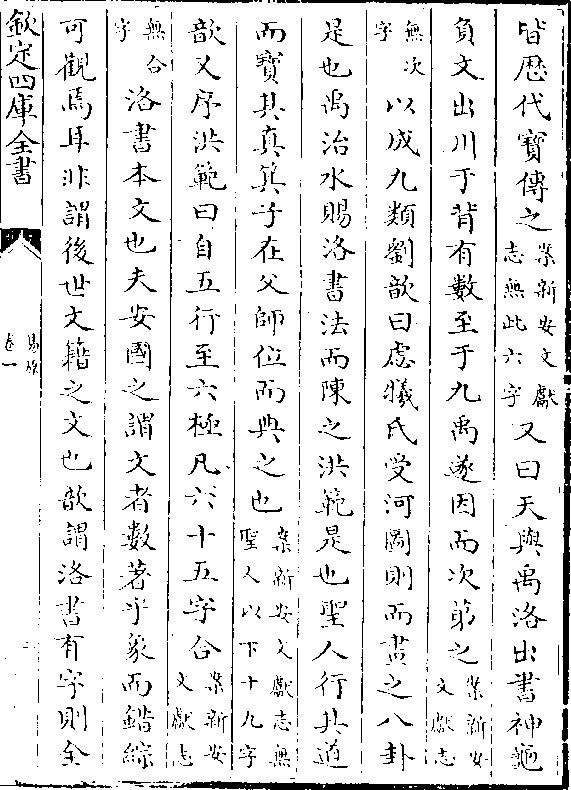 皆歴代寳傳之案新安文獻志無此六字又曰天與禹洛出書神龜
負文出川于背有數至于九禹遂因而次第之案新安文獻志
無次字以成九類劉歆曰虙犧氏受河圖則而畫之八卦
是也禹治水賜洛書法而陳之洪範是也聖人行其道
而寶其真箕子在父師位而典之也案新安文獻志無聖人以下十九字
歆又序洪範曰自五行至六極凡六十五字合案新安文獻志
無合字洛書本文也夫安國之謂文者數著乎象而錯綜
可觀焉耳非謂後世文籍之文也歆謂洛書有字則全
欽定四庫全書
卷一